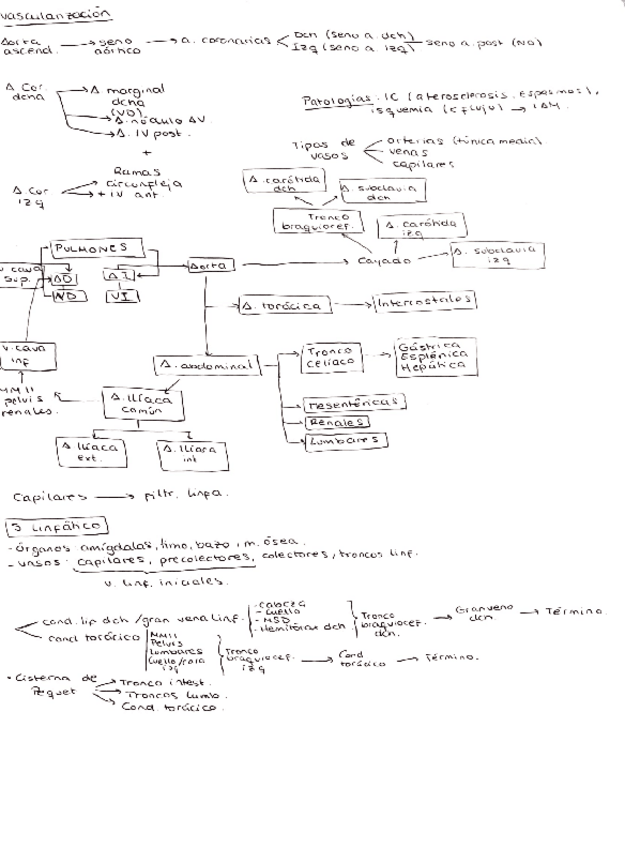 vascularización
Aorta ascend. → seno aórtico → a. coronarias < Dch (seno a. dch) Izq (seno a. izq) seno a. post (NO)
A Cor. dcha
→ A marginal dcha (VD)
→ A. nódulo AV
→ A. IV post.
+
A. Cor izq
Ramas
circunfleja
+ IV ant.
Patologías: IC (aterosclerosis. Espasmos),
isquemia (↓ flujo) → IAM
Tipos de vasos
arterias (túnica media).
venas
capilares
A. carótida dch
A. subclavia dch
Tronco braquiocef.
A. carótida izq
A. subclavia izq
Cayado
PULMONES
v cava sup.
AD
VD
AI
VI
Aorta
A. torácica → Intercostales
v. cava inf
A. abdominal
Tronco celíaco
Gástrica
Esplénica
Hepática
Mesentéricas
Renales
Lumbares
MMII
pelvis
renales.
A. Ilíaca común
A Ilíaca ext.
A. Ilíaca int
Capilares → filtr. linfa.
S linfático
- Órganos amígdalas, timo, bazo, m. ósea.
- vasos: capilares, precolectores, colectores, troncos linf.
v. linf. iniciales.
cond. linf dch / gran vena linf.
- cabeza
- cuello
- MSD
- Hemitórax dch
Tronco braquiocef. dch.
→ Gran vena dch → Término.
cond torácico
MMII
Pelvis
Lumbares
Cuello/cara izq
Tronco braquiocef. izq
→ Cond torácico → Término.
• Cisterna de Pequet
→ Tronco intest.
→ Troncos lumb.
→ Cond. torácico.